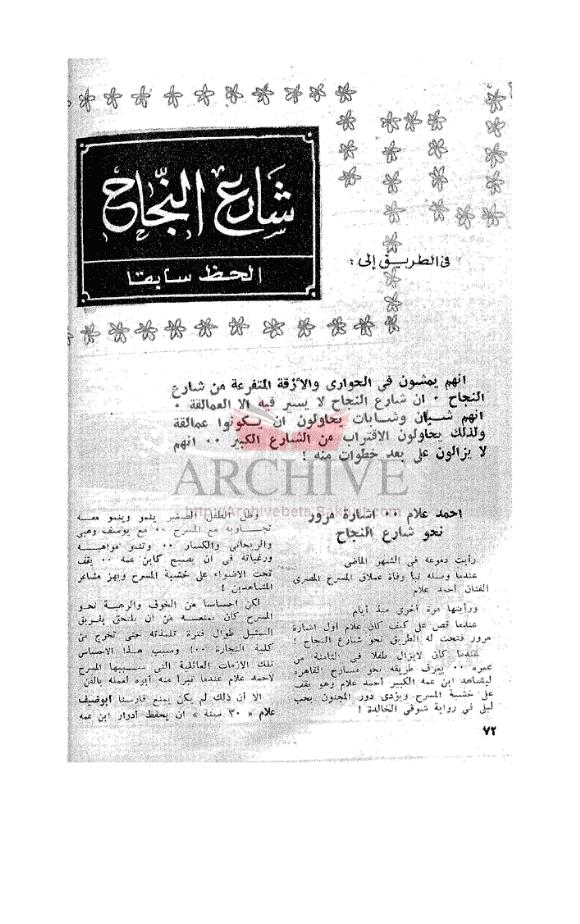 شارع النجاح
الحظ سابقا
في الطريق إلى :
انهم يمشون في الحوارى والأزقة المتفرعة من شارع
النجاح ٠ ان شارع النجاح لا يسير فيه الا العمالقة ٠
انهم شبان وشابات يحاولون ان يكونوا عمالقة
ولذلك يحاولون الاقتراب من الشارع الكبير ٠٠ انهم
لا يزالون على بعد خطوات منه !
ARCHIVE
احمد علام ٠٠ اشارة مرور
نحو شارع النجاح
رأيت دموعه في الشهر الماضى
عندما وصله نبأ وفاة عملاق المسرح المصرى
الفنان أحمد علام
ورأيتها مرة أخرى منذ أيام
عندما قص على كيف كان علام أول اشارة
مرور فتحت له الطريق نحو شارع النجاح !
عندما كان لايزال طفلا في الثامنة من
عمره ٠٠ يعرف طريقه نحو مسارح القاهرة
ليشاهد ابن عمه الكبير أحمد علام وهو يقف
على خشبة المسرح ويؤدى دور المجنون بحب
ليلى في رواية شوقى الخالدة !
وظل الطفل الصغير ينمو وينمو معه
تجاوبه مع المسرح ٠٠ مع يوسف وهبى
والريحانى والكسار ٠٠ وتنمو مواهبه
ورغباته في أن يصبح كابن عمه ٠٠ يقف
تحت الاضواء على خشبة المسرح ويهز مشاعر
المشاهدين !
لكن احساسا من الخوف والرهبة نحو
المسرح كان يمنعه من أن يلتحق بفريق
التمثيل طوال فترة تلمذته حتى تخرج من
كلية التجارة ٠٠ وسبب هذا الاحساس
تلك الازمات العائلية التى سببها المسرح
لاحمد علام عندما تبرأ منه أبوه لعمله بالفن
الا أن ذلك لم يكن يمنع فارسنا ابوضيف
علام « ٣٠ سنة » أن يحفظ أدوار ابن عمه
٧٢